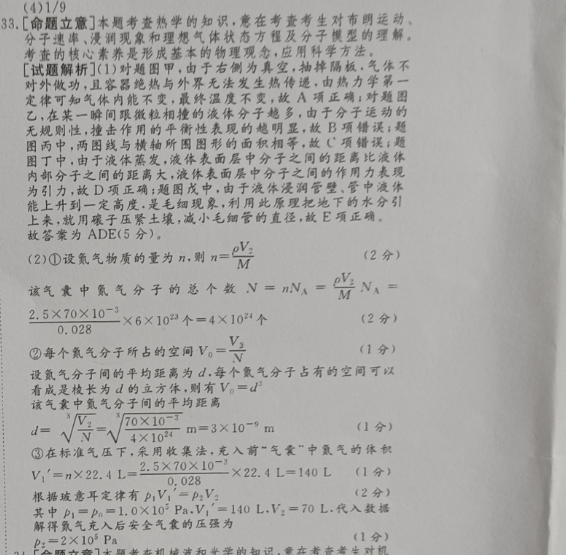 (4)1/9
33.[命题立意]本题考查热学的知识,意在考查考生对布朗运动、
分子速率、浸润现象和理想气体状态方程及分子模型的理解。
考查的核心素养是形成基本的物理观念,应用科学方法。
[试题解析](1)对题图甲,由于右侧为真空,抽掉隔板,气体不
对外做功,且容器绝热与外界无法发生热传递,由热力学第一
定律可知气体内能不变,最终温度不变,故 A 项正确;对题图
乙,在某一瞬间跟微粒相撞的液体分子越多,由于分子运动的
无规则性,撞击作用的平衡性表现的越明显,故 B 项错误;题
图丙中,两图线与横轴所围图形的面积相等,故 C 项错误;题
图丁中,由于液体蒸发,液体表面层中分子之间的距离比液体
内部分子之间的距离大,液体表面层中分子之间的作用力表现
为引力,故 D 项正确;题图戊中,由于液体浸润管壁,管中液体
能上升到一定高度,是毛细现象,利用此原理把地下的水分引
上来,就用磙子压紧土壤,减小毛细管的直径,故 E 项正确。
故答案为 ADE(5 分)。
(2)①设氮气物质的量为 n,则 n=ρV₂/M (2 分)
该气囊中氮气分子的总个数 N=nN_A=ρV₂/M N_A=
2.5×70×10⁻³/0.028×6×10²³ 个=4×10²⁴ 个 (2 分)
②每个氮气分子所占的空间 V₀=V₂/N (1 分)
设氮气分子间的平均距离为 d,每个氮气分子占有的空间可以
看成是棱长为 d 的立方体,则有 V₀=d³
该气囊中氮气分子间的平均距离
d=∛(V₂/N)=∛(70×10⁻³/4×10²⁴) m=3×10⁻⁹ m (1 分)
③在标准气压下,采用收集法,充入前“气囊”中氮气的体积
V₁′=n×22.4 L=2.5×70×10⁻³/0.028×22.4 L=140 L (1 分)
根据玻意耳定律有 p₁V₁′=p₂V₂ (2 分)
其中 p₁=p₀=1.0×10⁵ Pa,V₁′=140 L,V₂=70 L,代入数据
解得氮气充入后安全气囊的压强为
p₂=2×10⁵ Pa (1 分)
34.[命题立意]本题考查机械波和光学的知识,意在考查考生对机